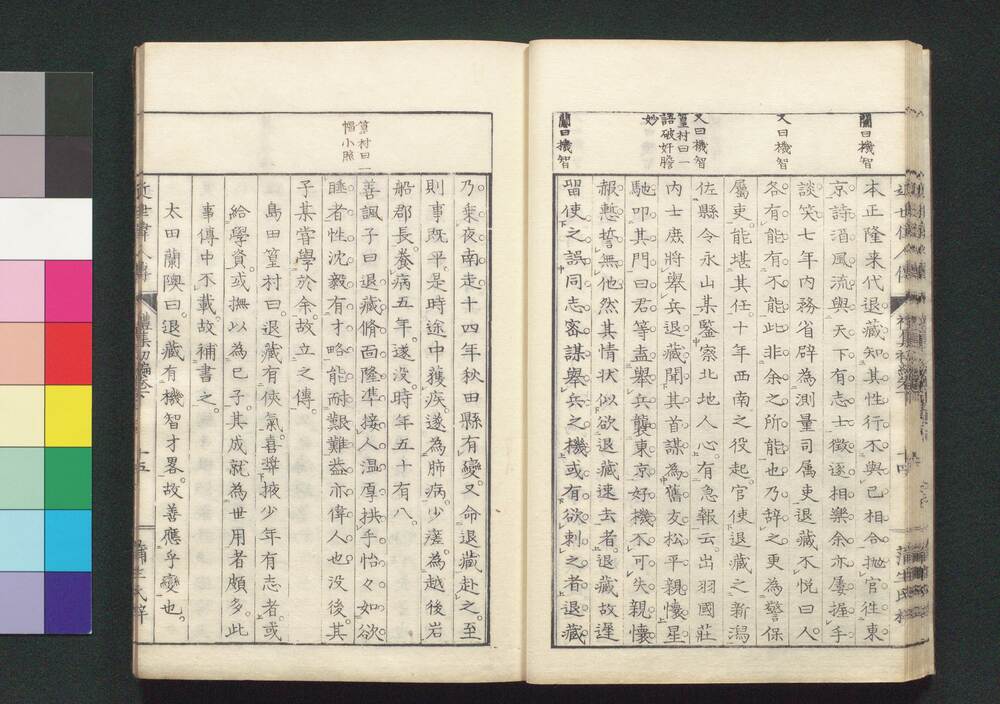 蘭曰機智
又曰機智
又曰機智
篁村曰一
語破奸膽
妙
蘭曰機智
本正隆来代退藏知其性行不與己相合抛官徃東
京詩酒風流與天下有志士徴逐相樂余亦屡握手
談笑七年内務省辟為測量司属吏退藏不悦曰人
各有能有不能此非余之所能也乃辞之更為警保
属吏能堪其任十年西南之役起官使退藏之新潟
佐縣令永山某鑒察北地人心有急報云出羽國莊
内士庶將舉兵退藏聞其首謀為舊友松平親懷星
馳叩其門曰君等盍舉兵襲東京好機不可失親懷
報慙誓無他然其情状似欲退藏速去者退藏故遅
留使之誤同志密謀舉兵之機或有欲刺之者退藏
篁村曰一
幅小照
乃乗夜南走十四年秋田縣有變又命退藏赴之至
則事既平是時途中獲疾遂為肺病少瘥為越後岩
船郡長養病五年遂没時年五十有八
善諷子曰退藏脩面隆準接人温厚拱手怡々如欲
睡者性沈毅有才略能耐艱難葢亦偉人也没後其
子某嘗學於余故立之傳
島田篁村曰退藏有侠氣喜奨掖少年有志者或
給學資或撫以為己子其成就為世用者頗多此
事傳中不載故補書之
太田蘭陝曰退藏有機智才畧故善應乎變也
近世偉人傳
十五
蒲生氏梓